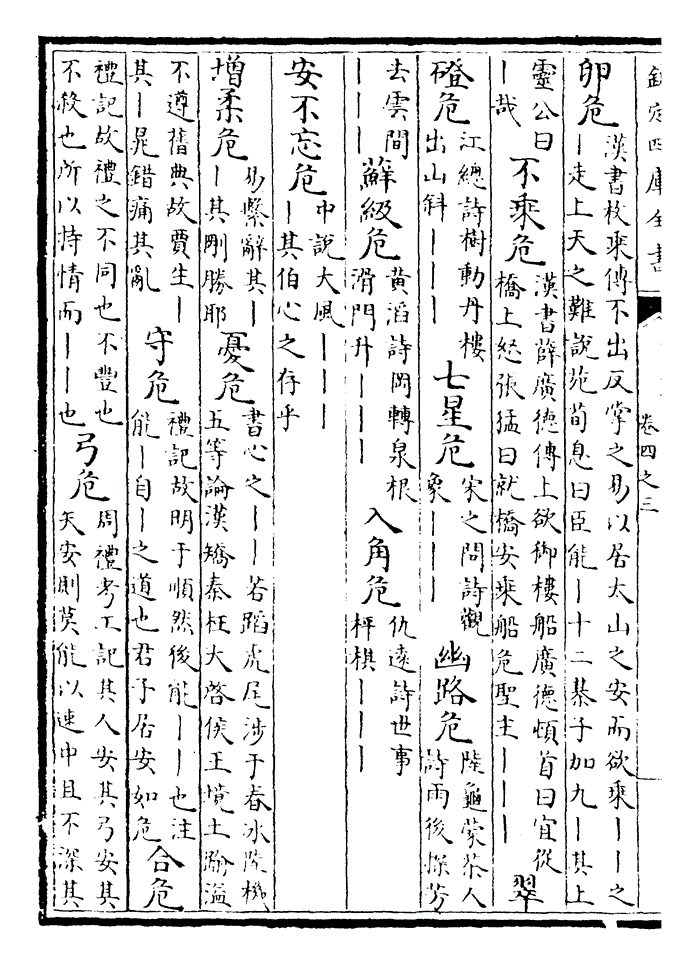 欽定四庫全書
卷四之三
卵危
漢書枚乘傳不出反掌之易以居太山之安而欲乘||之
|走上天之難說苑荀息曰臣能|十二棊子加九|其上
靈公曰
|哉
不乘危
漢書薛廣德傳上欲御樓船廣德頓首曰宜從
橋上怒張猛曰就橋安乘船危聖主|||
翠
磴危
江總詩樹動丹樓
出山斜|||
七星危
宋之問詩觀
象|||
幽路危
陸龜蒙茶人
詩雨後探芳
去雲間
|||
蘚級危
黃滔詩岡轉泉根
滑門升|||
入角危
仇遠詩世事
枰棋|||
安不忘危
中說大風|||
|其伯心之存乎
增柔危
易繫辭其|
|其剛勝耶
憂危
書心之||若蹈虎尾涉于春冰陸機
五等論漢矯秦枉大啓侯王境土踰溢
不遵舊典故賈生|
其|晁錯痛其亂
守危
禮記故明于順然後能||也注
能|自|之道也君子居安如危
合危
禮記故禮之不同也不豐也
不殺也所以持情而||也
弓危
周禮考工記其人安其弓安其
矢安則莫能以速中且不深其